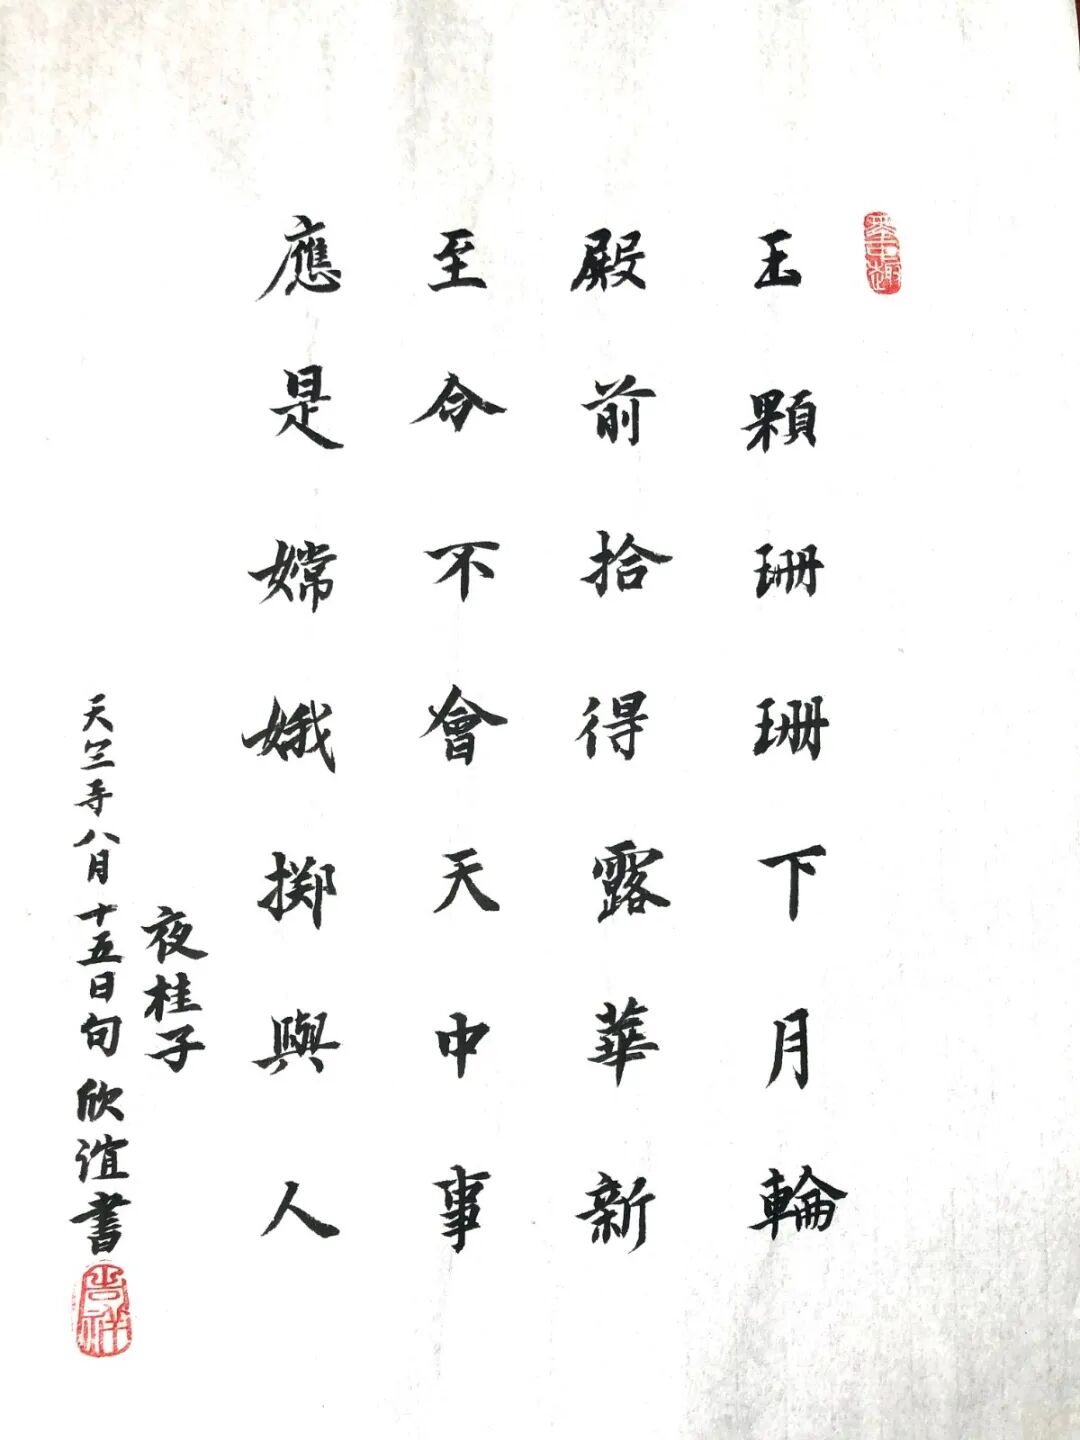 玉顆珊珊下月輪
殿前拾得露華新
至今不會天中事
應是嫦娥擲與人
夜桂子
天竺寺八月十五日句欣誼書
吉祥